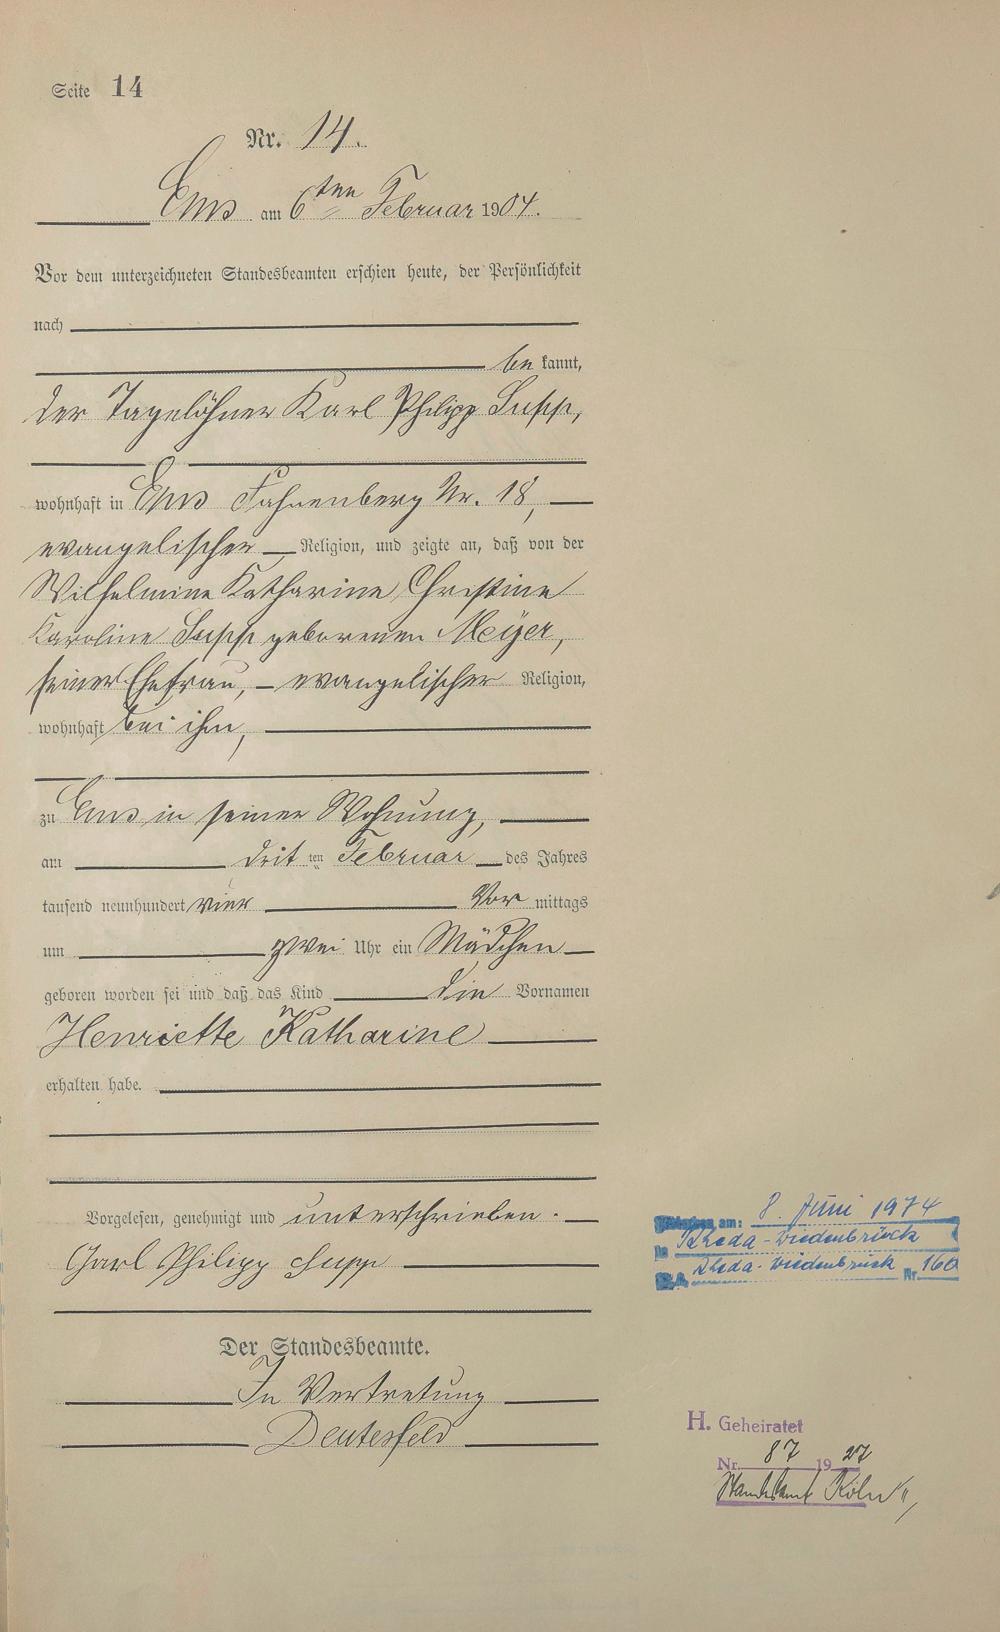 Seite 14
Nr. 14.
Ems am 6ten Februar 1904.
Vor dem unterzeichneten Standesbeamten erschien heute, der Persönlichkeit
nach
be kannt,
der Tagelöhner Karl Philipp Supp,
wohnhaft in Ems Fahnenberg Nr. 18,
evangelischer Religion, und zeigte an, daß von der
Wilhelmine Katharine Christine
Karoline Supp geborenen Meÿer,
seiner Ehefrau, evangelischer Religion,
wohnhaft bei ihm,
zu Ems in seiner Wohnung,
am drit ten Februar des Jahres
tausend neunhundert vier Vor mittags
um zwei Uhr ein Mädchen
geboren worden sei und daß das Kind die Vornamen
Henriette Katharine
erhalten habe.
Vorgelesen, genehmigt und unterschrieben.
Carl Philipp Supp
Der Standesbeamte.
In Vertretung
Deutesfeld
am: 8. Juni 1974
in Rheda-Wiedenbrück
Rheda-Wiedenbrück Nr. 160
H. Geheiratet
Nr. 87 19 27
Standesamt Köln